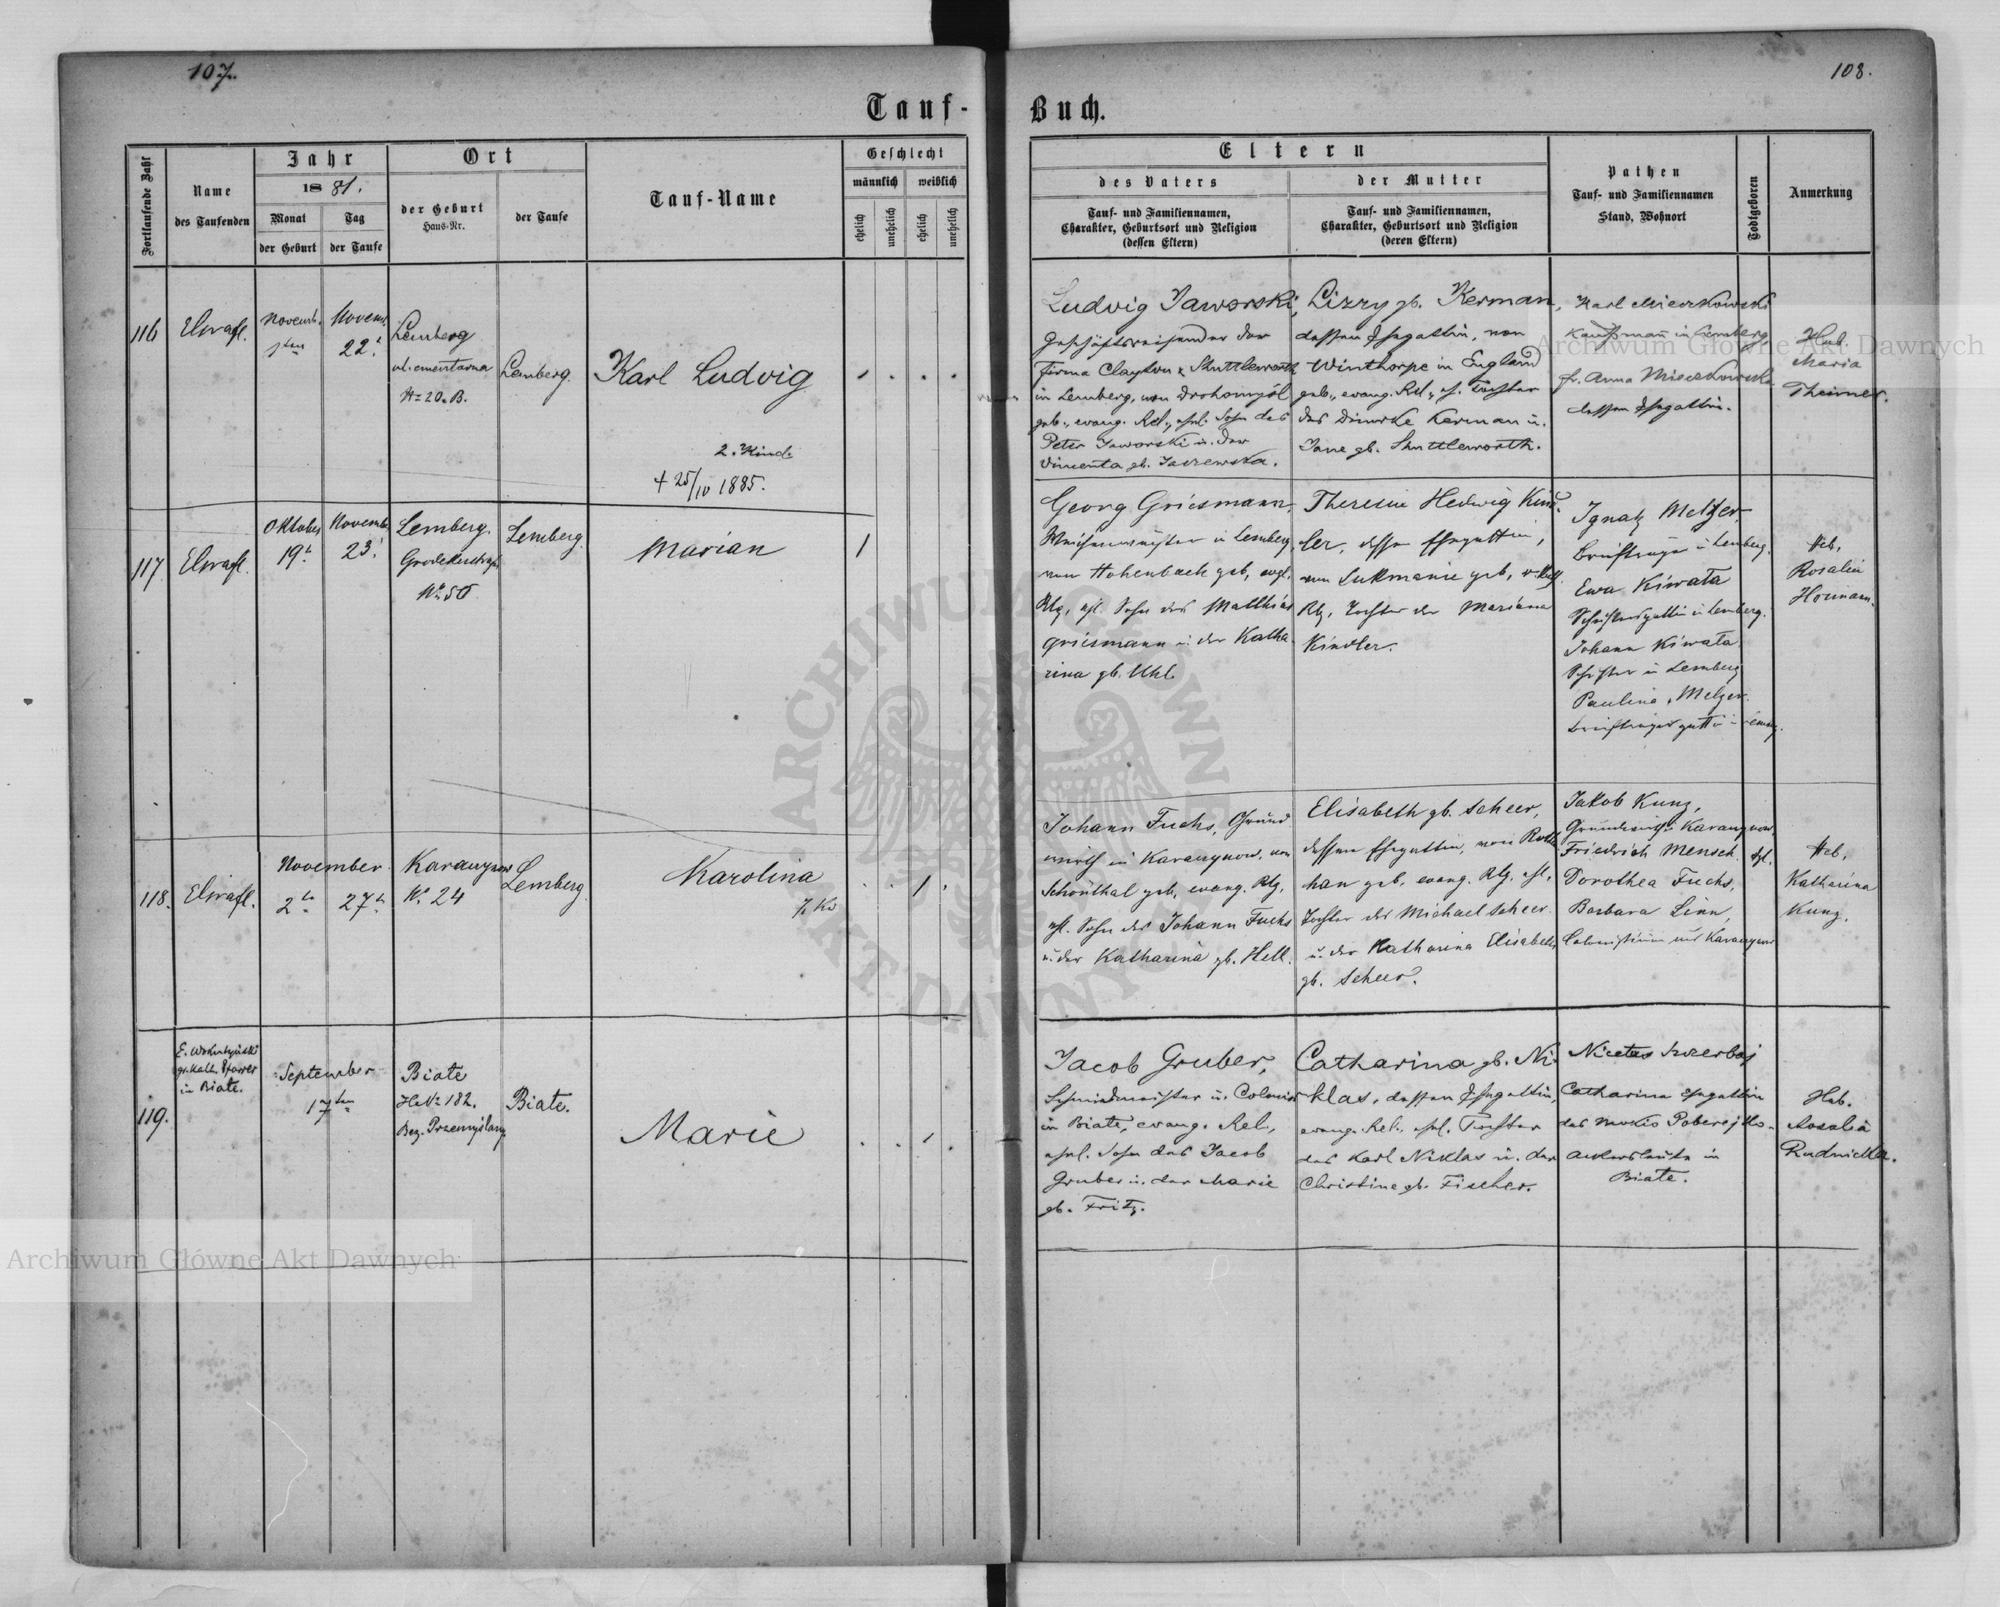 107.
108.
Tauf-Buch.
Fortlaufende Zahl
Name
des Taufenden
Jahr
1881.
Monat
der Geburt
Tag
der Taufe
Ort
der Geburt
Haus-Nr.
der Taufe
Tauf-Name
Geschlecht
männlich
weiblich
ehelich
unehelich
ehelich
unehelich
Eltern
des Vaters
Tauf- und Familiennamen,
Charakter, Geburtsort und Religion
(dessen Eltern)
der Mutter
Tauf- und Familiennamen,
Charakter, Geburtsort und Religion
(deren Eltern)
Pathen
Tauf- und Familiennamen
Stand, Wohnort
Todtgeboren
Anmerkung
116
Novemb.
1ten
Novemb.
22.
Lemberg
ul. cmentarna
No 20. B.
Lemberg.
Karl Ludvig
2. Kind.
+ 25/IV 1885.
Ludvig Jaworski,
Geschäftsreisender der
Firma Clayton & Shuttleworth
in Lemberg, von Drohomyśl
geb., evang. Rel., ehel. Sohn des
Peter Jaworski u. der
gb.
Lizzy gb. Kerman,
dessen Ehegattin, von
Winthorpe in England
geb., evang. Rel., eh. Tochter
des Kerman u.
Jane gb. Shuttleworth.
Karl Mieczkowski
Kaufmann in Lemberg
fr. Anna Mieczkowska
dessen Ehegattin.
Heb.
Maria
Theimer.
117
Oktober
19t
Novemb.
23.
Lemberg.
No 50
Lemberg.
Marian
Georg Griesmann,
in Lemberg,
von Hohenbach geb, evgl.
Rlg, ehl. Sohn des Matthias
Griesmann u. der Katha-
rina gb. Uhl.
Theresie Hedwig Kind-
ler, dessen Ehegattin,
von Lukmanie geb,
Rlg, Tochter der Mariana
Kindler.
Ignatz Metzer,
Briefträger in Lemberg.
Ewa Kiwata
in Lemberg.
Johann Kiwata
in Lemberg
Paulina Metzer
Heb,
Rosalia
Hormann.
118.
November
2te
27te
N. 24
Lemberg
Karolina
Johann Fuchs, Grund
wirth in
Schönthal geb, evang. Rlg,
ehl. Sohn des Johann Fuchs
u. der Katharina gb. Hell.
Elisabeth gb. Scheer,
dessen Ehegattin, von Rotte
han geb, evang. Rlg, ehl.
Tochter des Michael Scheer
u. der Katharina Elisabeth
gb. Scheer.
Jakob Kunz,
Friedrich Mensch,
Dorothea Fuchs,
Barbara Linn,
Heb,
Katharina
Kunz.
119.
gr. Kath. Pfarrer
in Biale.
September
17ten
Biale
HsNo 182.
Bez. Przemyślany
Biale.
Marie
Jacob Gruber,
Schmiedmeister u. Colonist
in Biale, evang. Rel.,
ehel. Sohn des Jacob
Gruber u. der Marie
gb. Fritz.
Catharina gb. Ni-
klas, dessen Ehegattin,
evang. Rel., ehel. Tochter
des Karl Niklas u. der
Christine gb. Fischer.
Nicetas
Catharina Ehegattin
des
Ackersleute in
Biale.
Heb.
Rosalia
Rudnicka.
Archiwum Główne Akt Dawnych
Archiwum Główne Akt Dawnych
ARCHIWUM GŁÓWNE AKT DAWNYCH